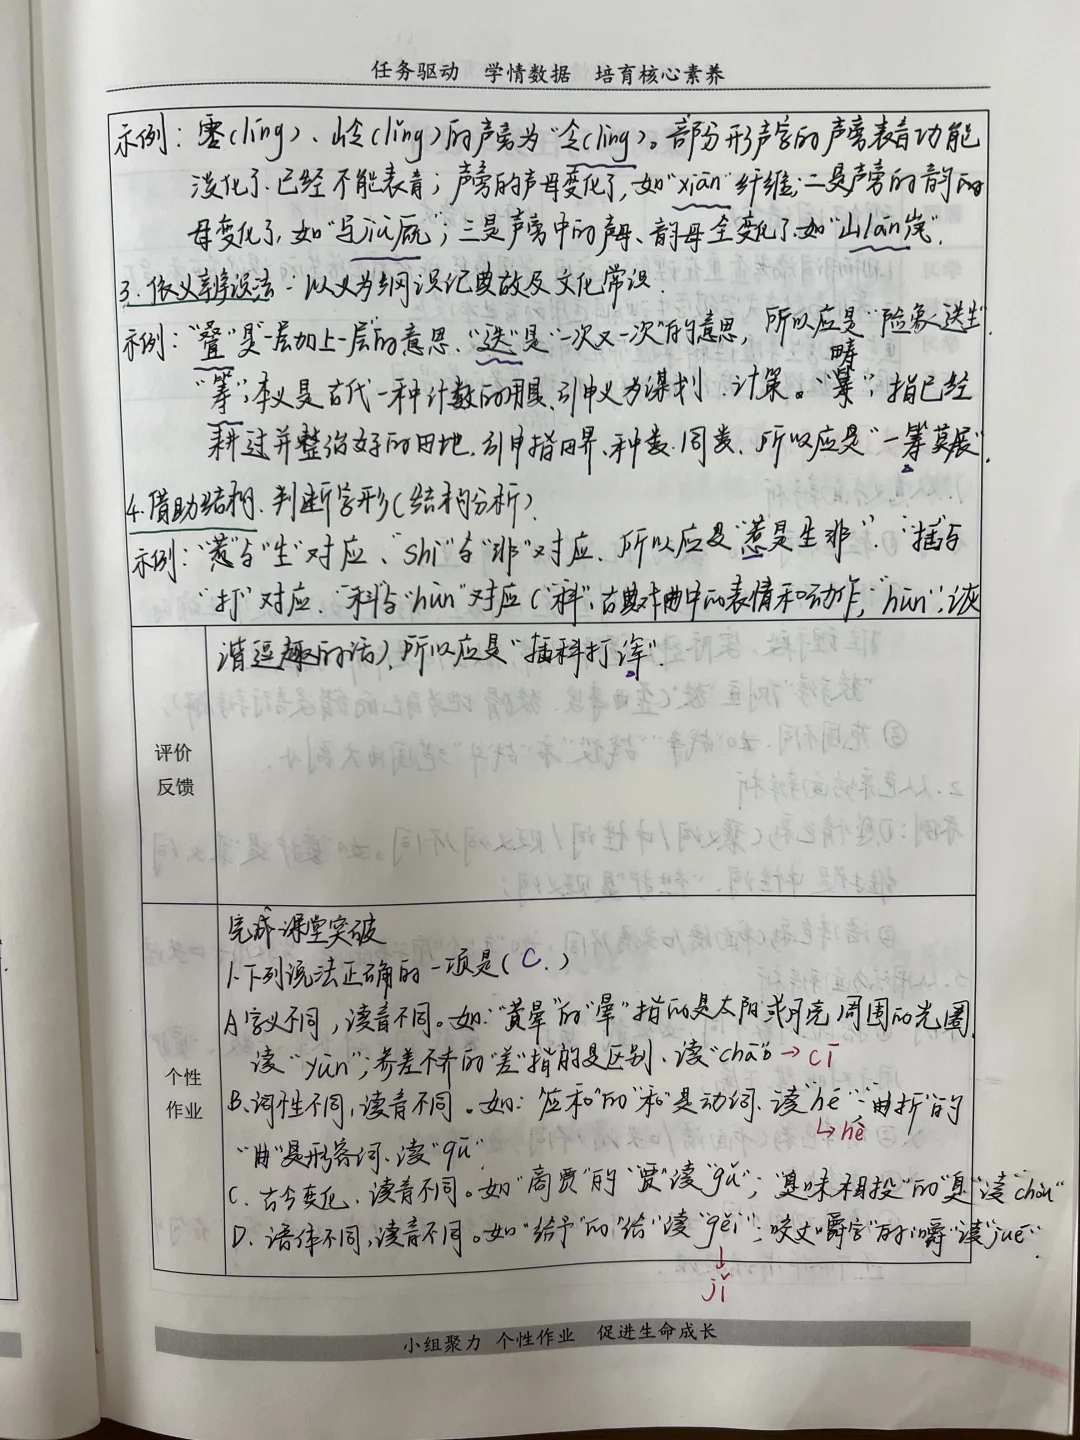 任务驱动 学情数据 培育核心素养
示例：零(líng)、岭(lǐng)的声旁为“令(lìng)。部分形声字的声旁表音功能
淡化了.已经不能表音；声旁的声母变化了,如“xiān”纤维;二是声旁的韵的
母变化了,如“马jiù厩”；三是声旁中的声母、韵母全变化了.如“山lán岚”.
3.依义辨误法：以义为纲识记典故及文化常识.
示例：“叠”是“一层加上一层”的意思.“迭”是“一次又一次”的意思，所以应是“险象迭生”.
畴
“筹”;本义是古代一种计数的用具.引申义为谋划.计策。“筹”;指已经
耕过并整治好的田地.引申指田界、种类.同类.所以应是“一筹莫展”.
4.借助结构.判断字形(结构分析)
示例：“惹”与“生”对应、“shì”与“非”对应.所以应是“惹是生非”.“插”与
“打”对应.“科”与“hùn”对应(“科”:古典戏曲中的表情和动作,“hùn”:诙
谐逗趣的话).所以应是“插科打诨”.
评价
反馈
完成课堂突破
1.下列说法正确的一项是(C.)
A字义不同，读音不同。如：“黄晕”的“晕”指的是太阳或月亮周围的光圈.
读“yùn”；参差不齐的“差”指的是区别.读“chā” → cī
B.词性不同,读音不同。如：应和”的“和”是动词.读“hé”；曲折”的
↳hè
“曲”是形容词.读“qū”
C.古今变化.读音不同。如“商贾”的“贾”读“gǔ”；“臭味相投”的“臭”读“chòu”
D.语体不同,读音不同。如“给予”的“给”读“gěi”；咬文嚼字”的“嚼”读“jué”.
↓
jǐ
个性
作业
小组聚力 个性作业 促进生命成长